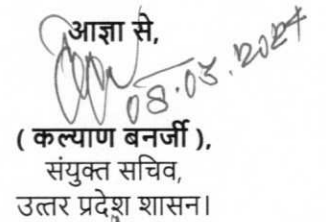 आज्ञा से,
08.03.2024
( कल्याण बनर्जी ),
संयुक्त सचिव,
उत्तर प्रदेश शासन।